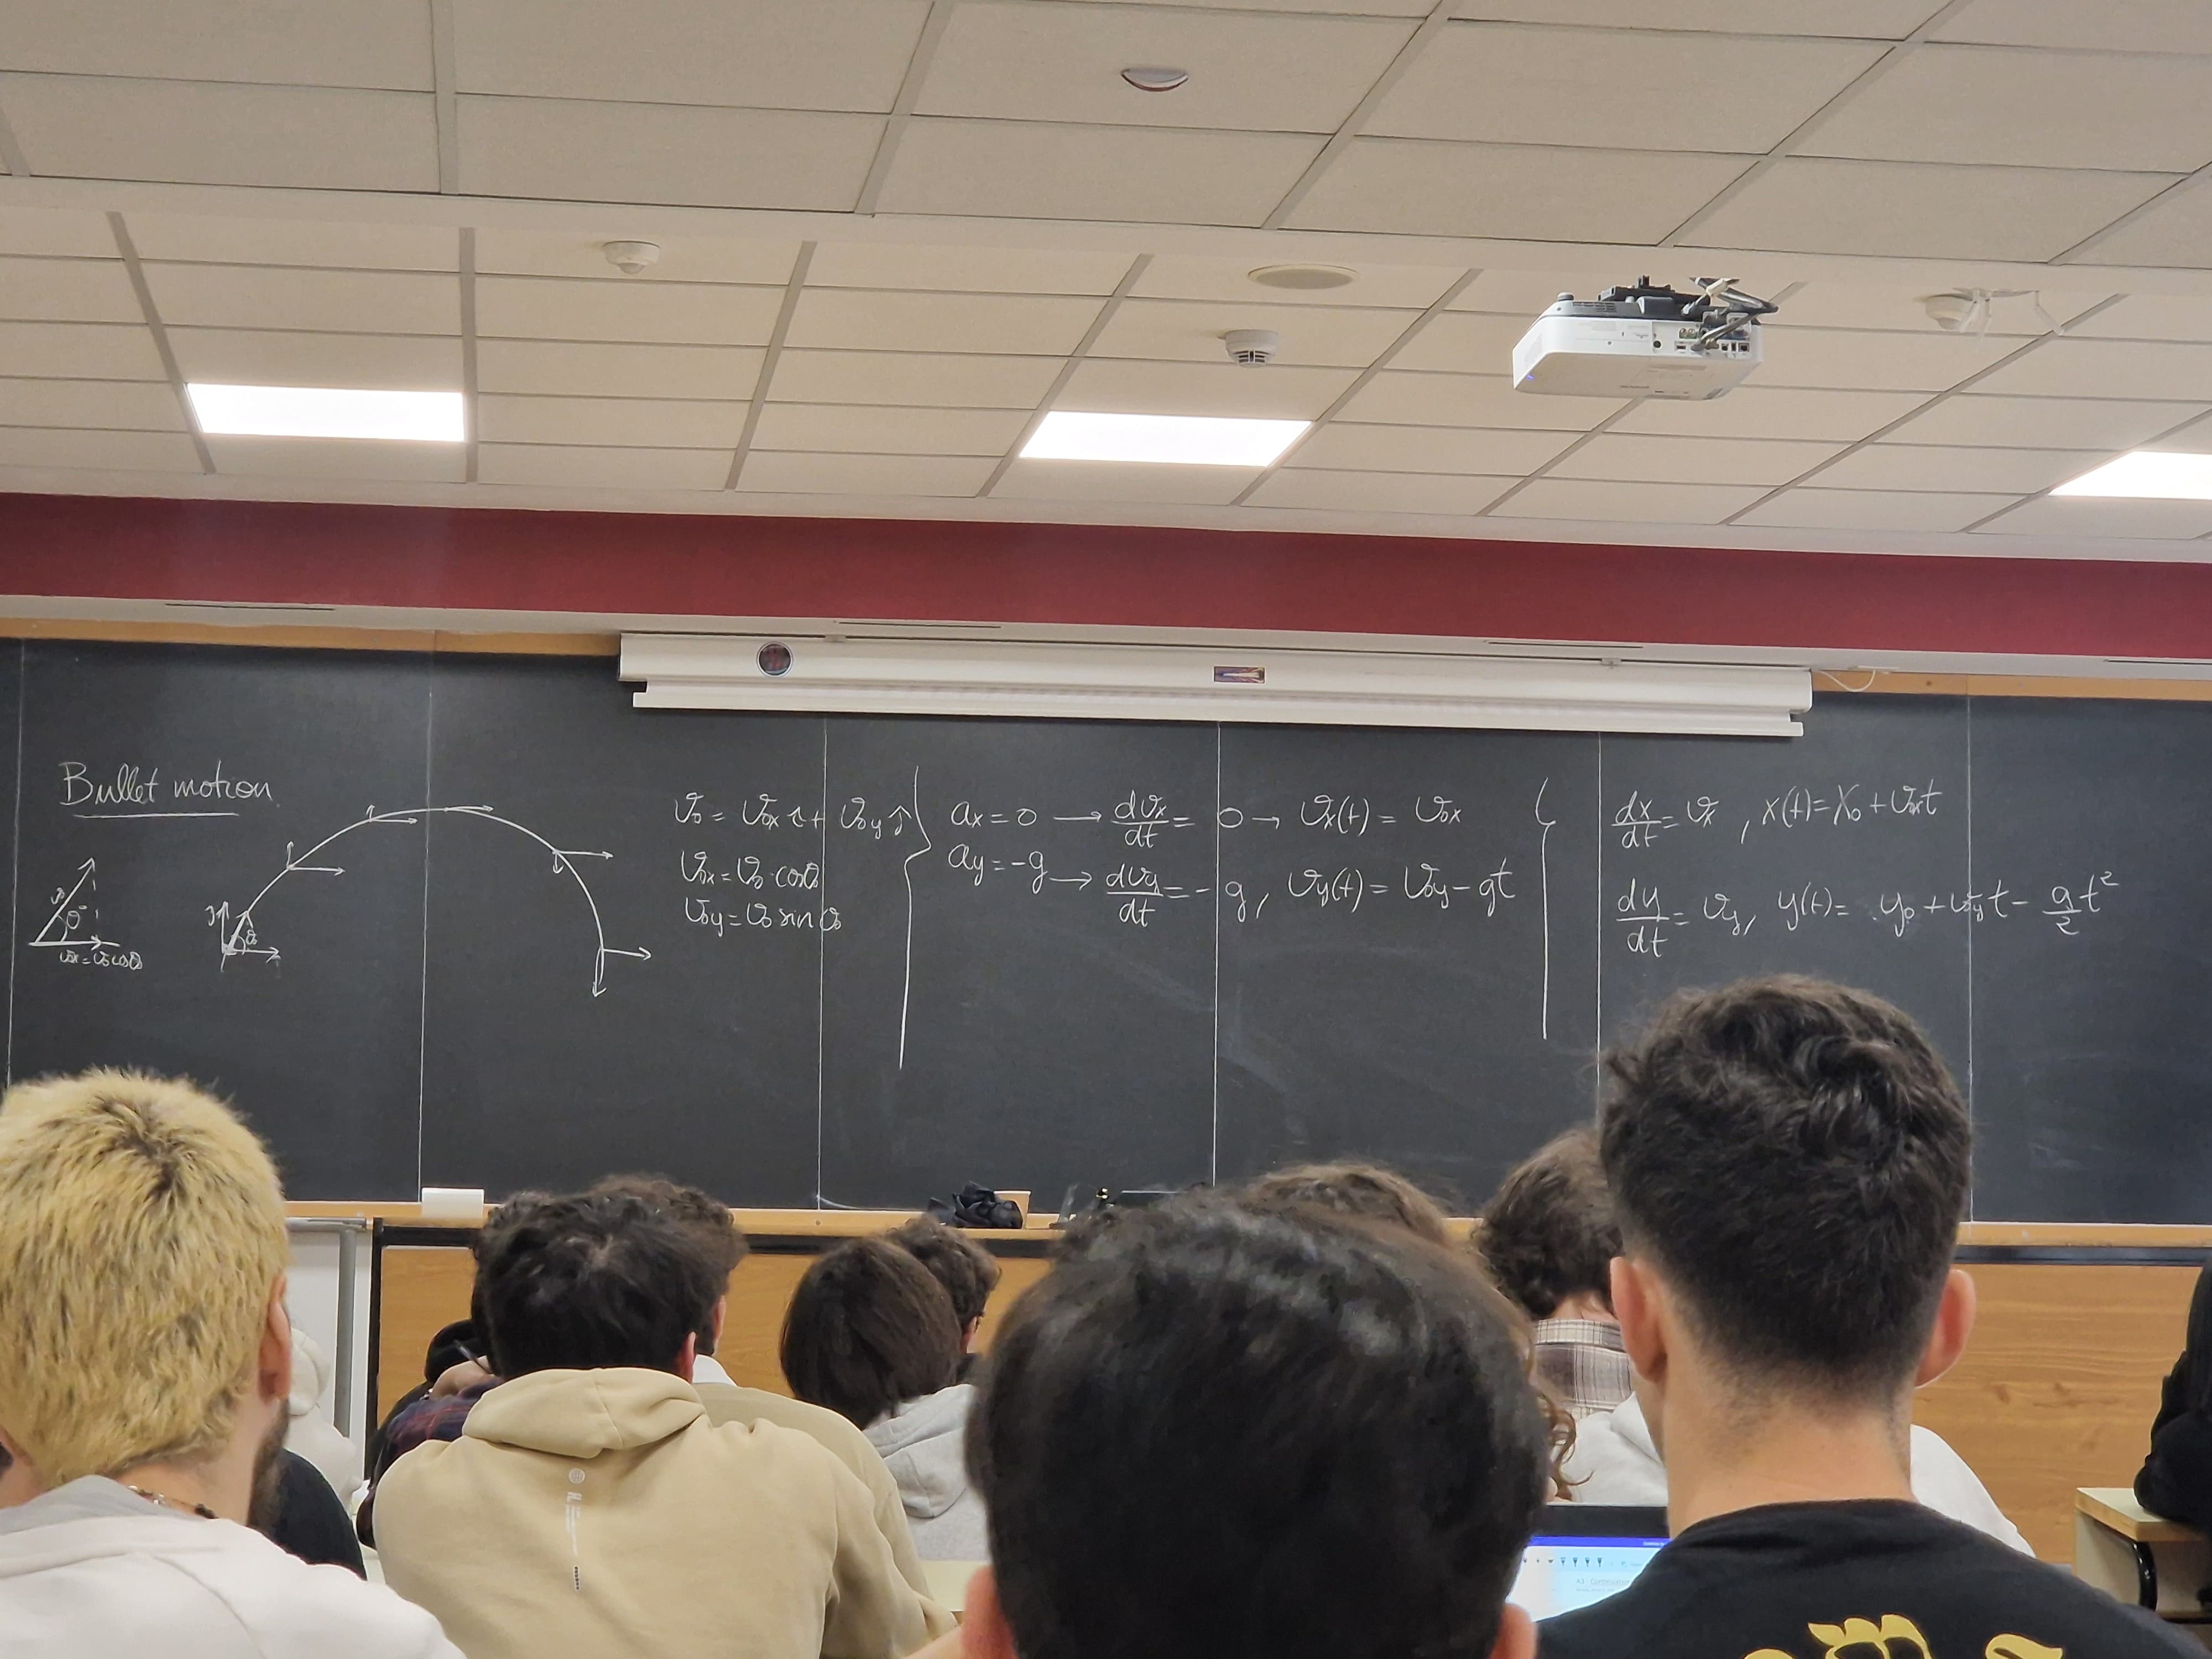 Bullet motion
θ
v₀ₓ = v₀ cosθ₀
y
θ₀
v₀ = v₀ₓ î + v₀y ĵ
v₀ₓ = v₀ · cosθ₀
v₀y = v₀ sin θ₀
aₓ = 0 → dvₓ/dt = 0 → vₓ(t) = v₀ₓ
ay = -g → dvy/dt = - g, vy(t) = v₀y - gt
dx/dt = vₓ, x(t) = X₀ + v₀ₓt
dy/dt = vy, y(t) = y₀ + v₀yt - gt²/2